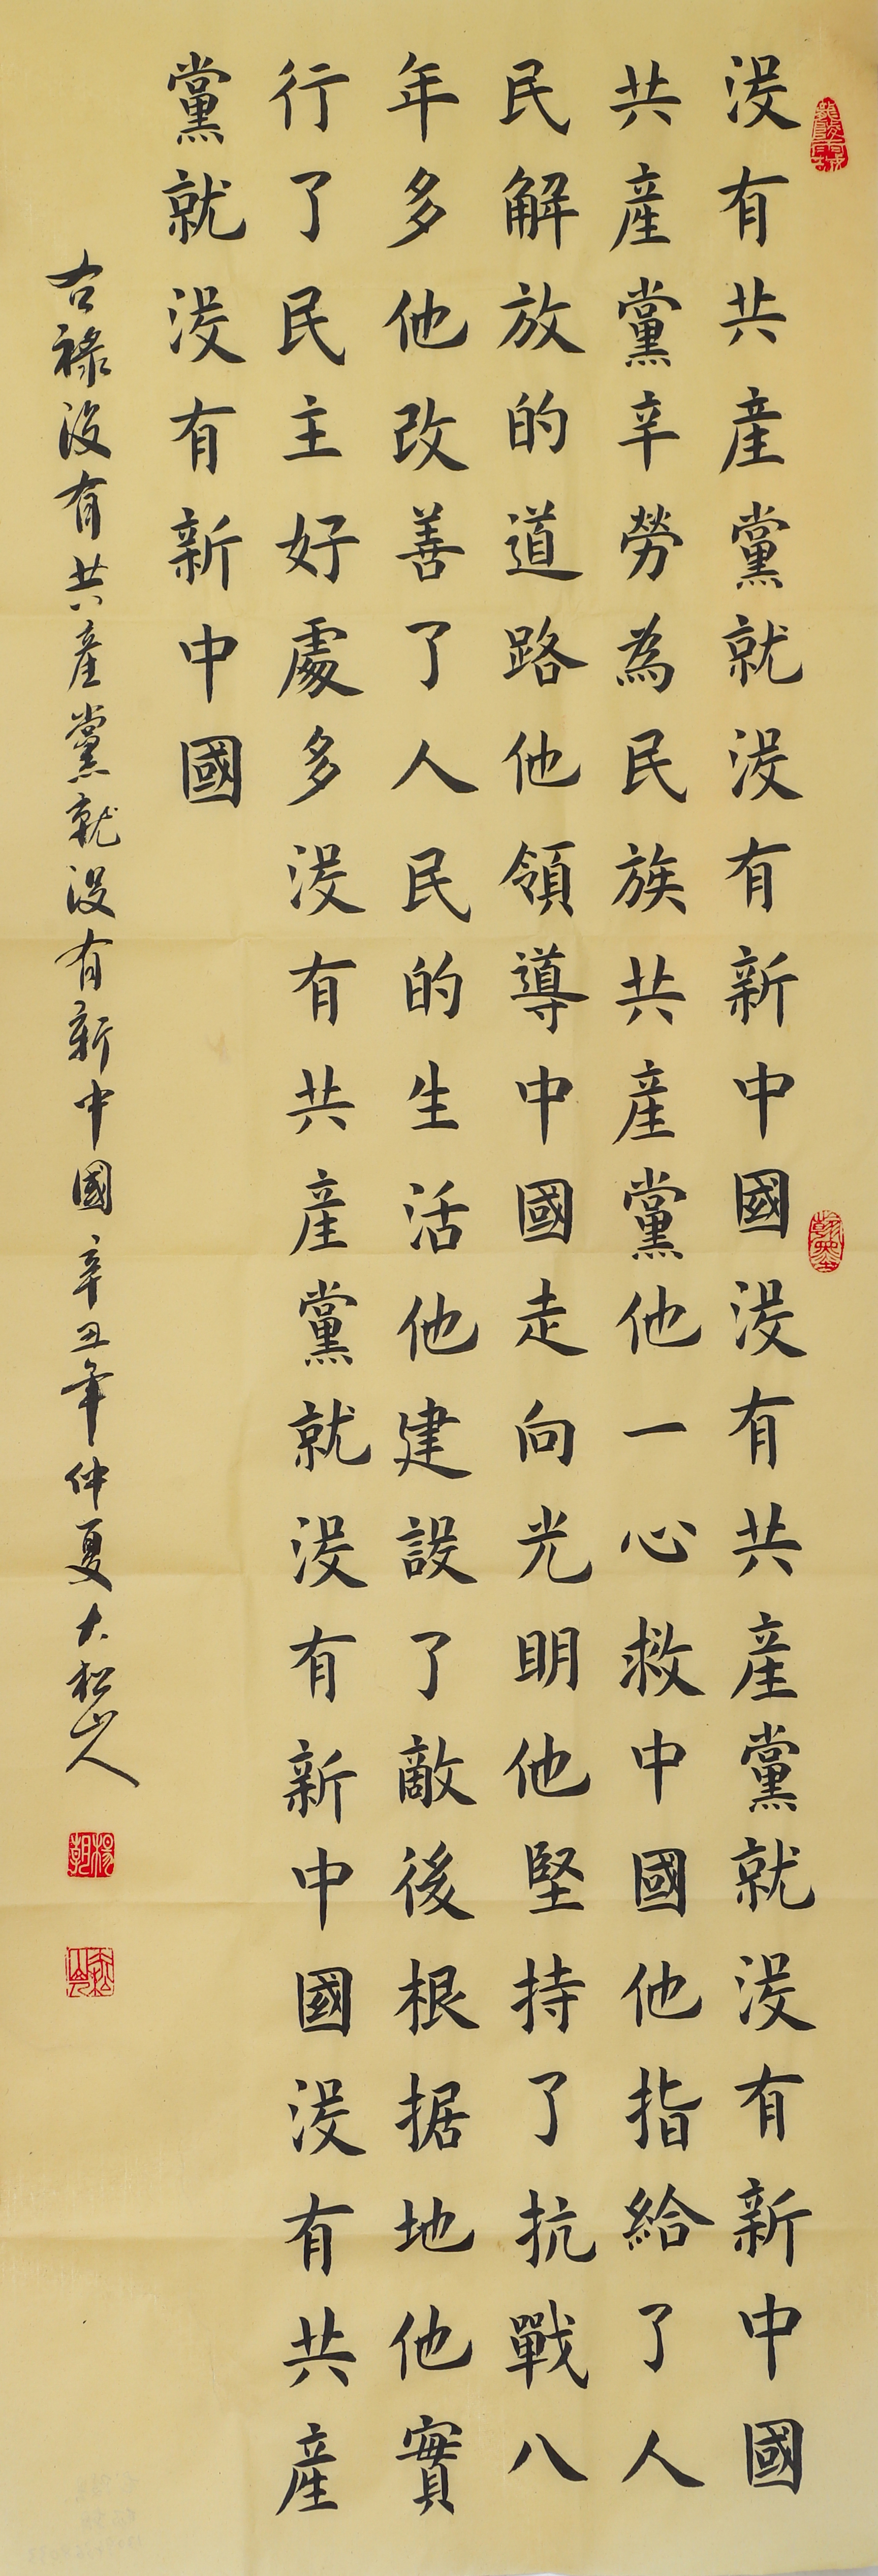 没有共產黨就没有新中國没有共產黨就没有新中國
共產黨辛勞為民族共產黨他一心救中國他指給了人
民解放的道路他領導中國走向光明他堅持了抗戰八
年多他改善了人民的生活他建設了敵後根据地他實
行了民主好處多没有共產黨就没有新中國没有共產
黨就没有新中國
右祿没有共產黨就没有新中國辛丑年仲夏大松山人
翰墨
楊朝